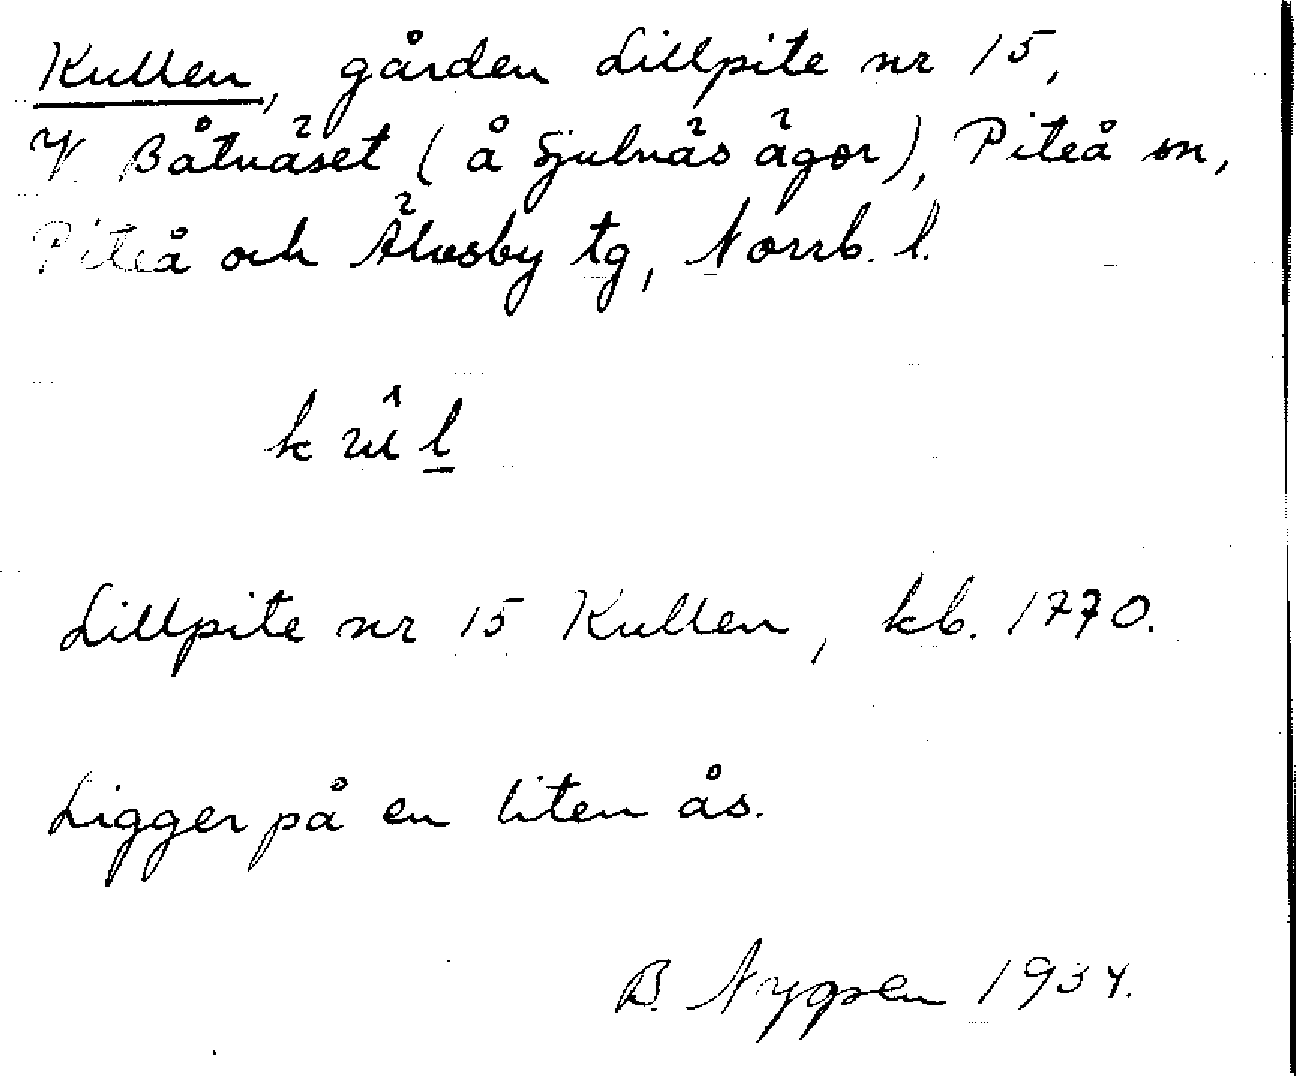 Kullen, gården Lillpite nr 15,
V Båtnäset (å Sjulnäs ägor), Piteå sn,
Piteå och Älvsby tg, Norrb. l.
Lillpite nr 15 Kullen, kb. 1770.
Ligger på en liten ås.
B. 1934.